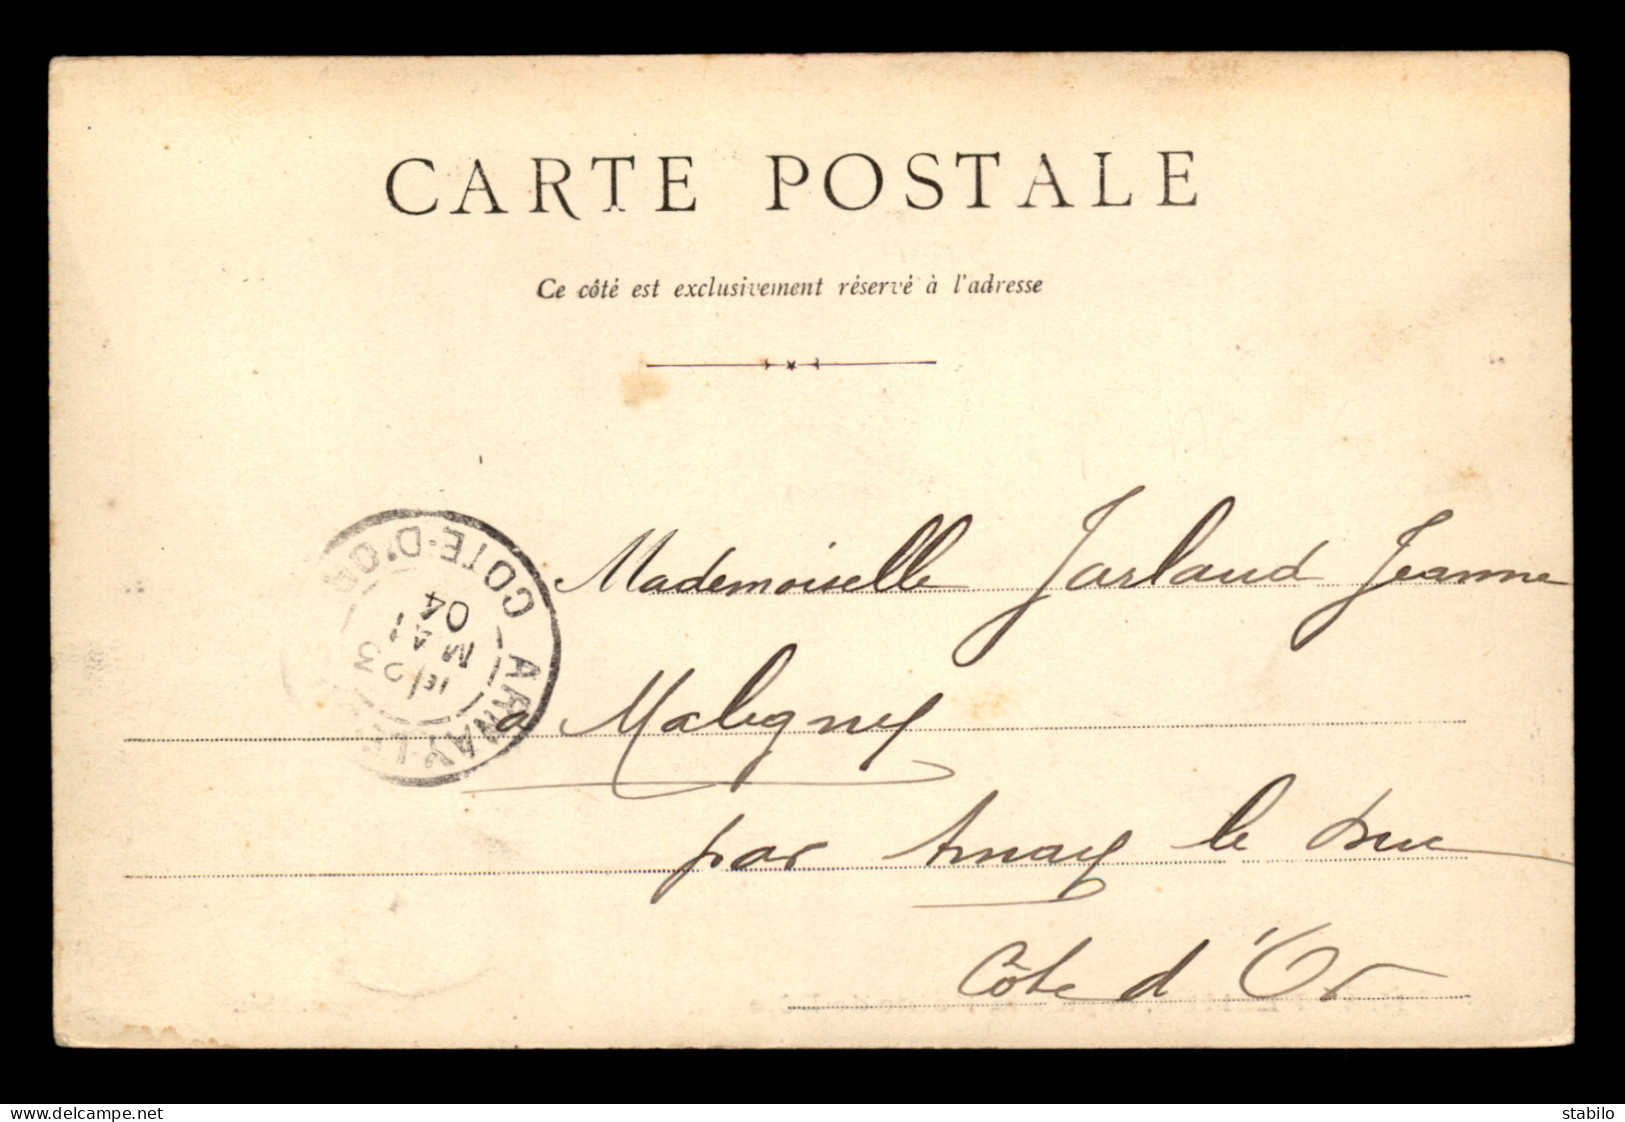 CARTE POSTALE
Ce côté est exclusivement réservé à l'adresse
Mademoiselle Jarlaud Jeanne
a Maligny
par Arnay le Duc
Côte d'Or
ARNAY-LE
COTE-D'OR
23
MAI
04
delcampe.net
stabilo